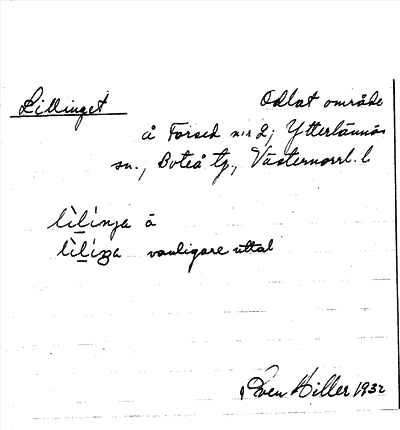 Lillinget Odlat område
å Forsed n:r 2; Ytterlännäs
sn., Boteå tg., Västernorrl. l
lìlínja å
vanligare uttal
Sven Hiller 1932